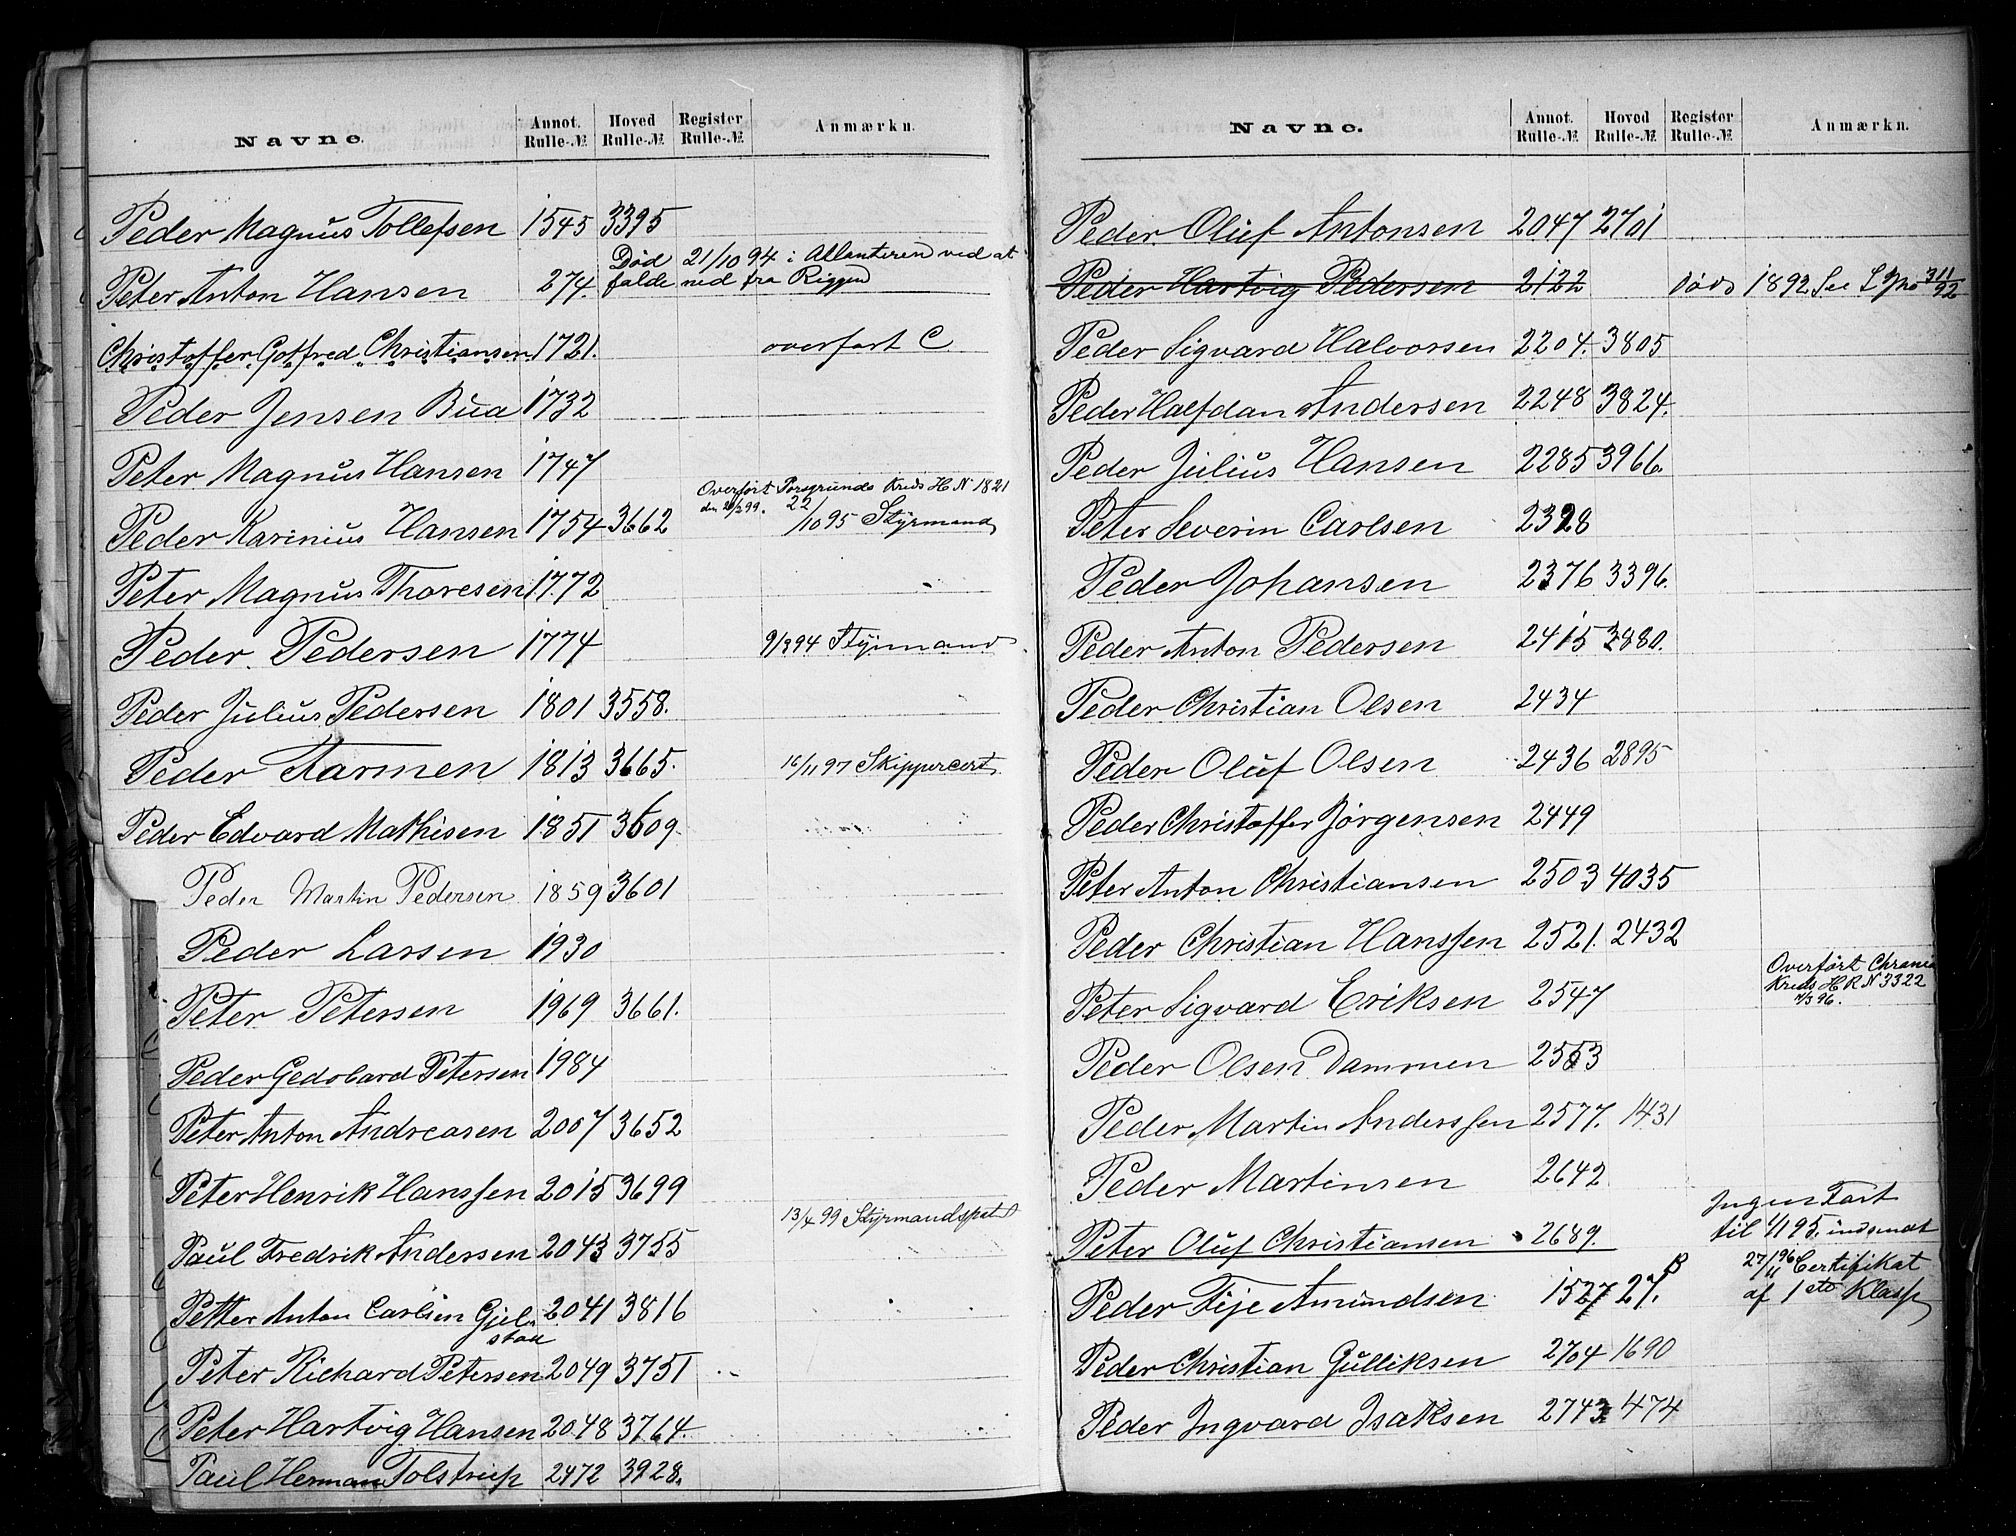 Navne. Annot. Rulle-№ Hoved Rulle-№ Register Rulle-№ Anmærkn.
Peder Magnus Tollefsen 1545 3395
Død 21/10 94 i Atlanteren ved at
Peter Anton Hansen 274. falde ned fra Riggen
Christoffer Gotfred Christiansen 1721. overført C
Peder Jensen Bua 1732
Peter Magnus Hansen 1747
Overført Porsgrunds Kreds H N 1821
Peder Karinius Hansen 1754 3662 22/10 95 Styrmand
Peter Magnus Thoresen 1772
Peder Pedersen 1774 9/3 94 Styrmand
Peder Julius Pedersen 1801 3558.
Peder Aarmen 1813 3665. 16/11 97 Skippercert
Peder Edvard Mathisen 1851 3609
Peder Martin Pedersen 1859 3601
Peder Larsen 1930
Peter Petersen 1969 3661.
Peder Gedobard Petersen 1984
Peter Anton Andreasen 2007 3652
Peter Henrik Hanssen 2015 3699
13/4 99 Styrmandspat
Paul Fredrik Andersen 2043 3755
Petter Anton Carlsen Gjel- 2041 3816
stad
Peter Richard Petersen 2049 3751
Peter Hartvig Hansen 2048 3764.
Paul Herman Tolstrup 2472 3928.
Navne. Annot. Rulle-№ Hoved Rulle-№ Register Rulle-№ Anmærkn.
Peder Oluf Antonsen 2047 2701
Peder Hartvig Pedersen 2122 døds 1892 See L No 311/92
Peder Sigvard Halvorsen 2204. 3805
Peder Halfdan Andersen 2248 3824.
Peder Julius Hansen 2285 3966.
Peter Severin Carlsen 2328
Peder Johansen 2376 3396.
Peder Anton Pedersen 2415 3880.
Peder Christian Olsen 2434
Peder Oluf Olsen 2436 2895
Peder Christoffer Jørgensen 2449
Peter Anton Christiansen 2503 4035
Peder Christian Hanssen 2521. 2432
Overført Chrania
Kreds H R N 3322
Peter Sigvard Eriksen 2547 4/3 96.
Peder Olsen Dammen 2553
Peder Martin Anderssen 2577. 1431
Peder Martinsen 2642
Ingen Fart
Peter Oluf Christiansen 2689. til 1/1 95, indsendt
27/11 96 Certifikat
Peder Teje Amundsen 1527 27. B af 1ste Klasse
Peder Christian Gulliksen 2704 1690
Peder Ingvard Isaksen 2743 474